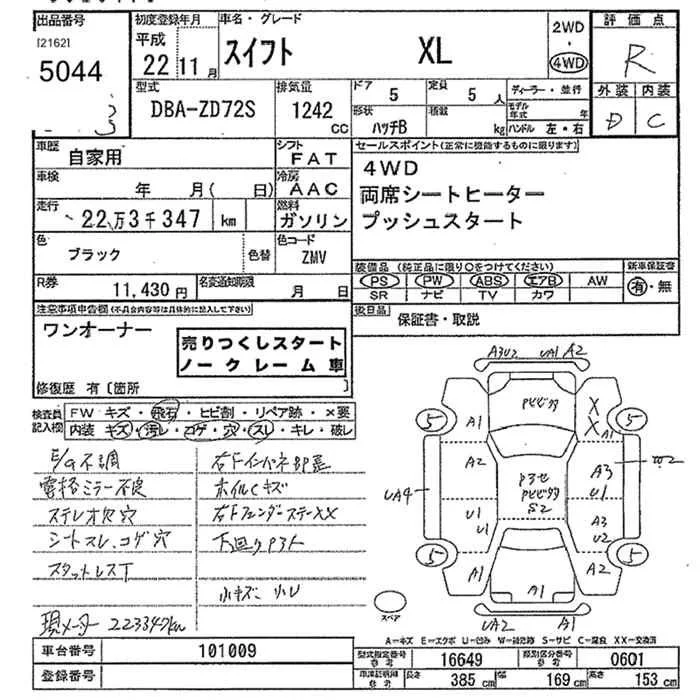 出品番号 初度登録年月 車名・グレード 2WD 評価点
[2162] 平成 スイフト XL ・ R
5044 22 11月 4WD 外装 内装
型式 排気量 ドア 定員 ディーラー・並行 D C
DBA-ZD72S 1242 CC 5 5人 モデル年式 年
形状 積載
ハッチB kg ハンドル 左・右
車歴 シフト セールスポイント(正常に機能するものに限ります)
自家用 FAT 4WD
車検 冷房 両席シートヒーター
年 月( 日) AAC プッシュスタート
走行 燃料
22万3千347 km ガソリン
色 色替 色コード
ブラック ZMV
装備品(純正品に限り○をつけてください) 新車保証書
R券 名変通知期限 PS PW ABS エアB AW 有・無
11,430円 月 日 SR ナビ TV カワ
注意事項申告欄(不具合内容等は具体的に記入して下さい) 後日品 保証書・取説
ワンオーナー
売りつくしスタート
ノークレーム車
修復歴 有〔箇所
検査員記入欄 FW キズ・飛石・ヒビ割・リペア跡・×要
内装 キズ・汚レ・コゲ・穴・スレ・キレ・破レ
E/g不調 右Fインパネ部歪
電格ミラー不良 ホイルCキズ
ステレオ欠穴 右FフェンダーステーXX
シートスレ、コゲ穴 下回りP3ト
スタットレスT
小キズ 小U
現メーター 223347km
A3U2 UA1 A2
5 A1 X X A1 5
A2 A3 W2
UA4 U1 U1 S2 U1
A3 U2
5 A1 A1 A2 5
スペア UA2 A1
A=キズ E=エクボ U=凹み W=補修跡 S=サビ C=腐食 XX=交換済
車台番号 101009 型式指定番号 参考 16649 類別区分番号 参考 0601
登録番号 車検証明用 参考 長さ 385cm 幅 169cm 高さ 153cm